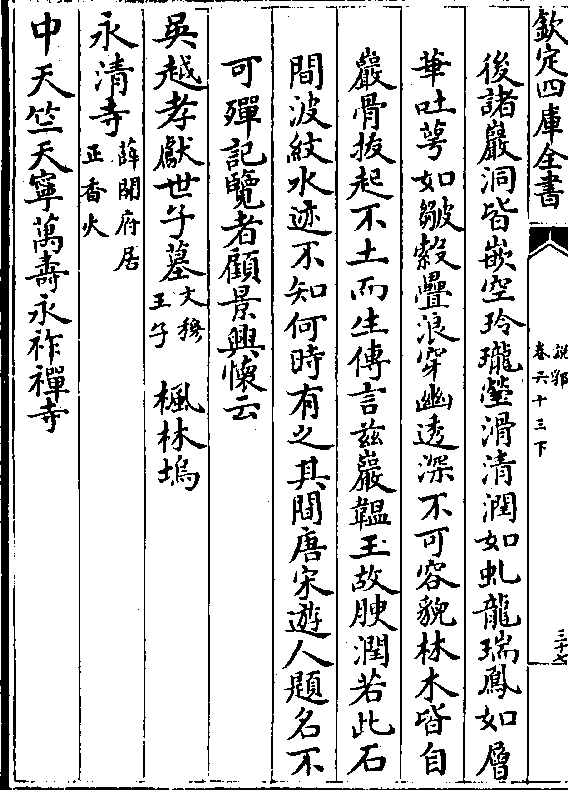 欽定四庫全書
說郛
卷六十三下
三十七
後諸巖洞皆嵌空玲瓏瑩滑清潤如虬龍瑞鳳如層
華吐萼如皺縠疊浪穿幽透深不可容貌林木皆自
巖骨拔起不土而生傳言兹巖韞玉故腴潤若此石
間波紋水迹不知何時有之其間唐宋遊人題名不
可殫記覽者顧景興懷云
吳越孝獻世子墓文穆王子 楓林塢
永清寺薛開府居正香火
中天竺天寧萬壽永祚禪寺